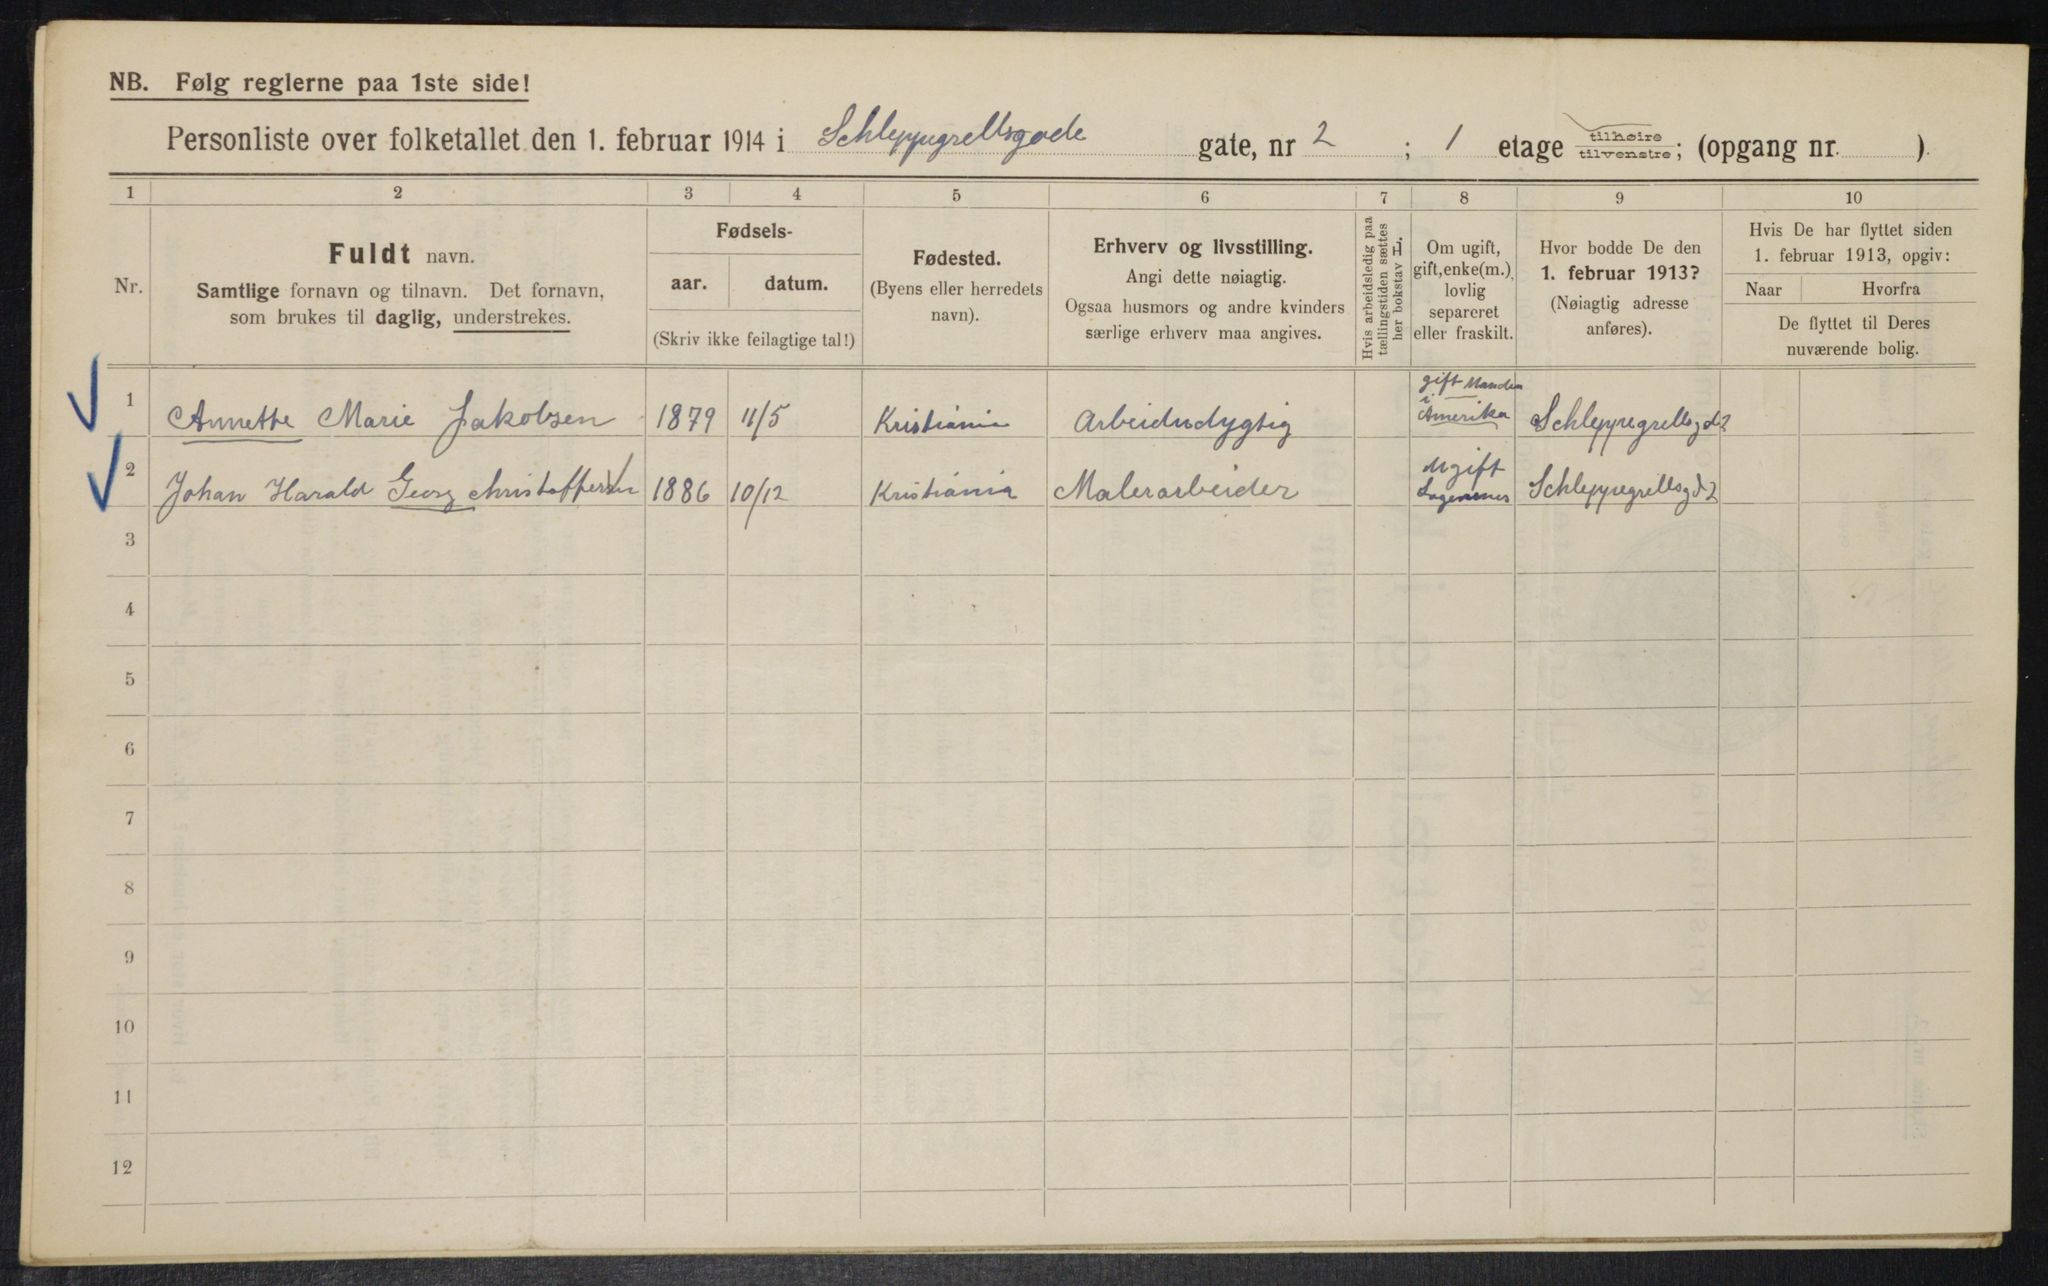 NB. Følg reglerne paa 1ste side!
Personliste over folketallet den 1. februar 1914 i Schleppegrellsgade gate, nr 2 ; 1 etage tilhøire tilvenstre; (opgang nr. ).
1 2 3 4 5 6 7 8 9 10
Nr.
Fuldt navn.
Samtlige fornavn og tilnavn. Det fornavn,
som brukes til daglig, understrekes.
Fødsels-
aar. datum.
(Skriv ikke feilagtige tal!)
Fødested.
(Byens eller herredets
navn).
Erhverv og livsstilling.
Angi dette nøiagtig.
Ogsaa husmors og andre kvinders
særlige erhverv maa angives.
Hvis arbeidsledig paa
tællingstiden sættes
her bokstav L.
Om ugift,
gift, enke(m.),
lovlig
separeret
eller fraskilt.
Hvor bodde De den
1. februar 1913?
(Nøiagtig adresse
anføres).
Hvis De har flyttet siden
1. februar 1913, opgiv:
Naar Hvorfra
De flyttet til Deres
nuværende bolig.
1 Annette Marie Jakobsen 1879 11/5 Kristiania Arbeidudygtig gift Manden i Amerika Schleppegrellsgd 2
2 Johan Harald Georg Christoffersen 1886 10/12 Kristiania Malerarbeider Ugift Schleppegrellsgd 2
3
4
5
6
7
8
9
10
11
12